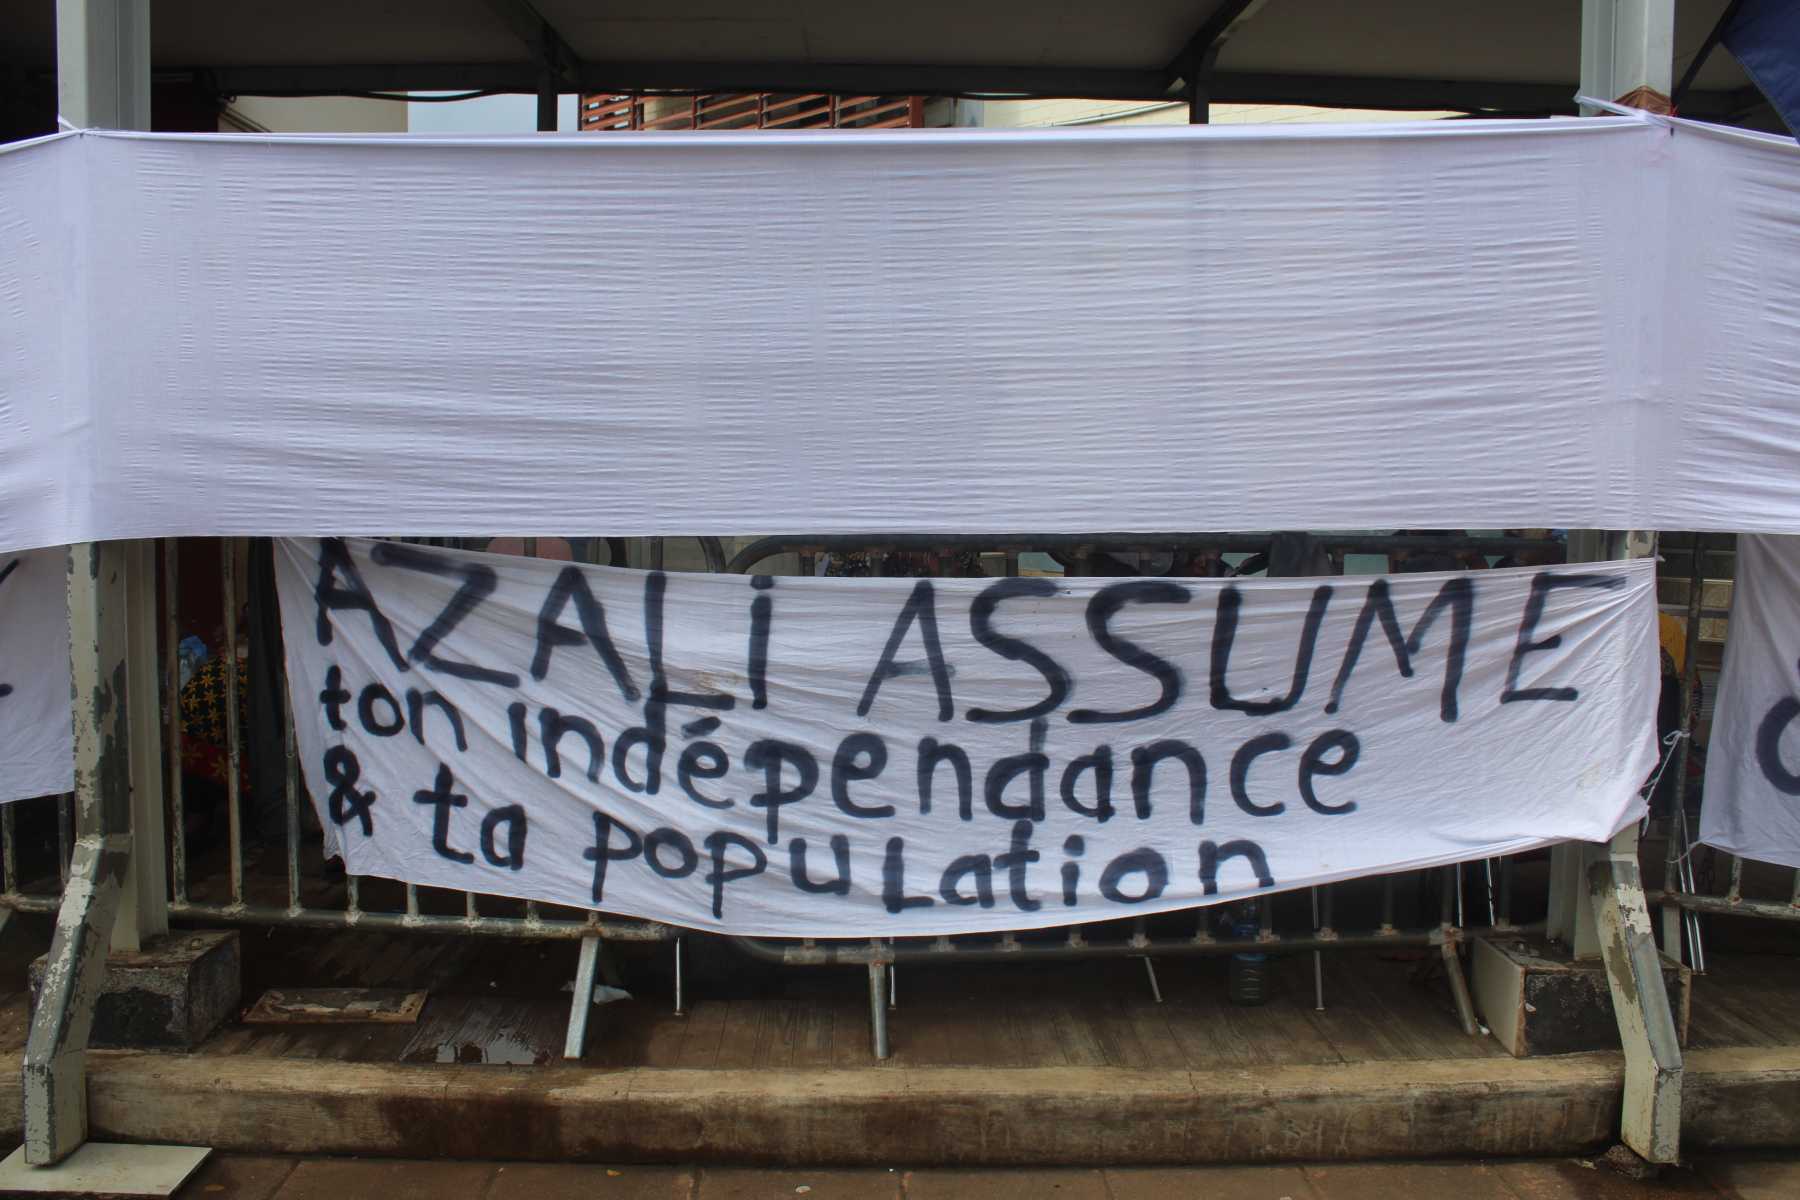 AZALi ASSUME
ton indépendance
& ta population